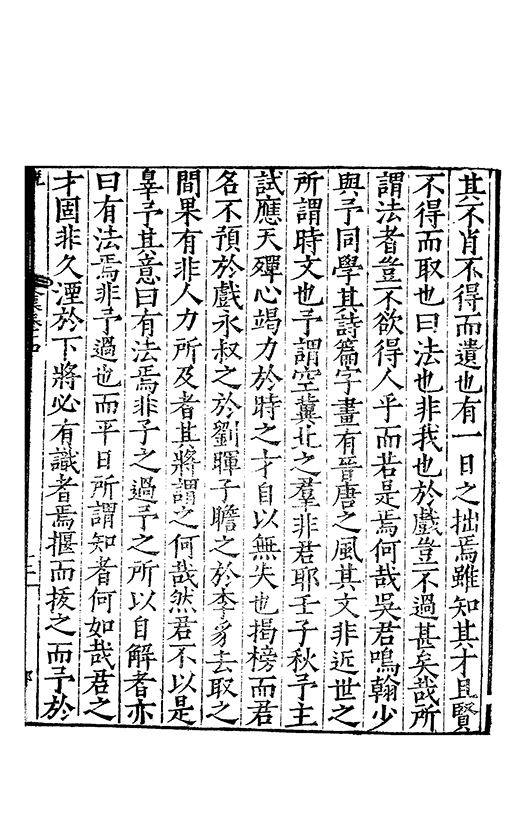 其不肖不得而遺也有一日之拙焉雖知其才且賢
不得而取也曰法也非我也於戲豈不過甚矣哉所
謂法者豈不欲得人乎而若是焉何哉吳君鳴翰少
與予同學其詩篇字畫有晉唐之風其文非近世之
所謂時文也予謂空冀北之羣非君耶壬子秋予主
試應天殫心竭力於時之才自以無失也揭榜而君
名不預於戲永叔之於劉暉子瞻之於李豸去取之
間果有非人力所及者其將謂之何哉然君不以是
辠予其意曰有法焉非子之過予之所以自解者亦
曰有法焉非予過也而平日所謂知者何如哉君之
才固非久湮於下將必有識者焉揠而拔之而予於